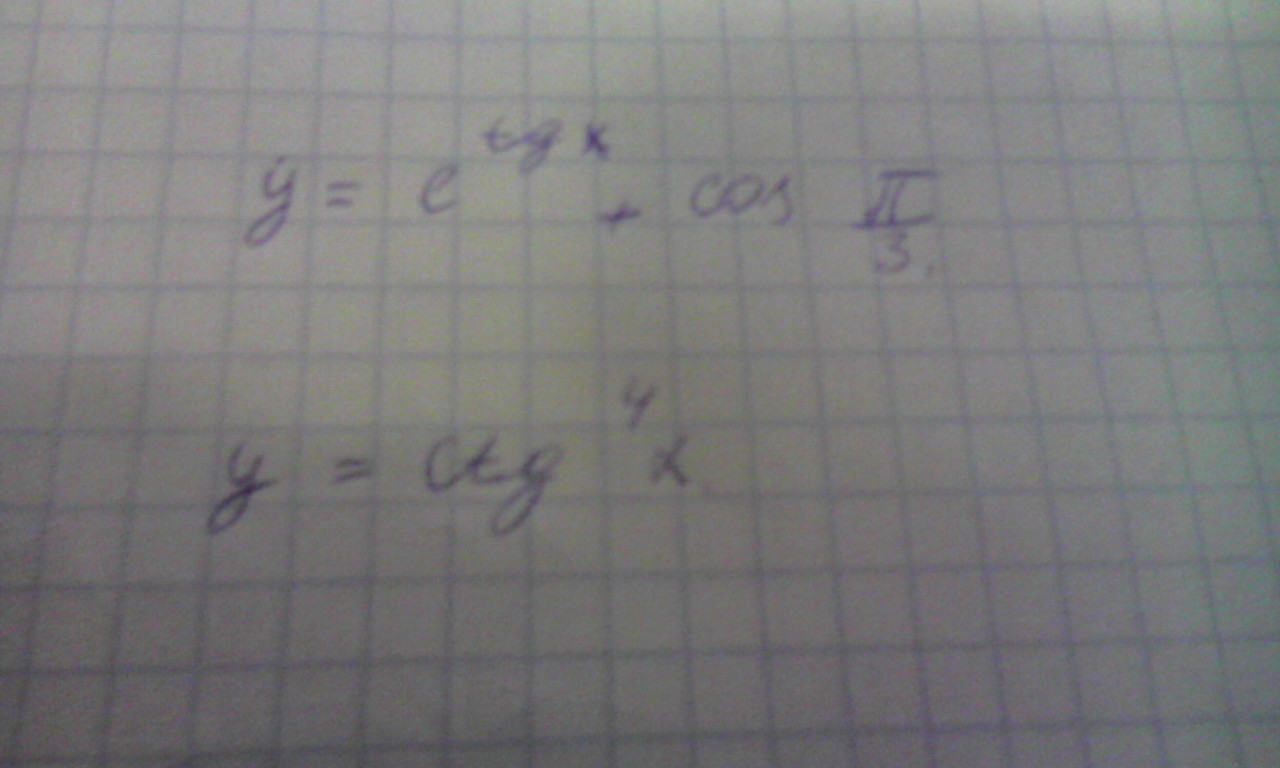 y = e^{tg x} + cos π/3.
y = ctg^4 x